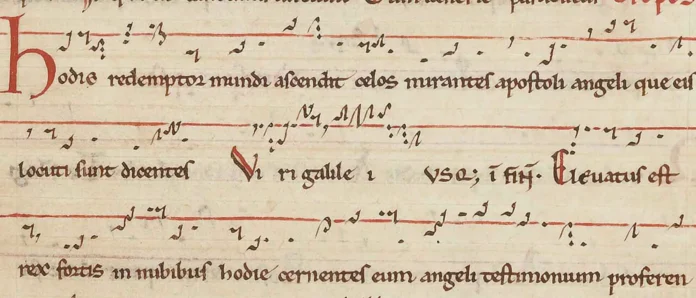 hodie redemptor mundi ascendit celos mirantes apostoli angeli que eis
locuti sunt dicentes Vi ri galile i usq; ī fin̄. Eleuatus est
rex fortis in nubibus hodie cernentes eum angeli testimonium proferen